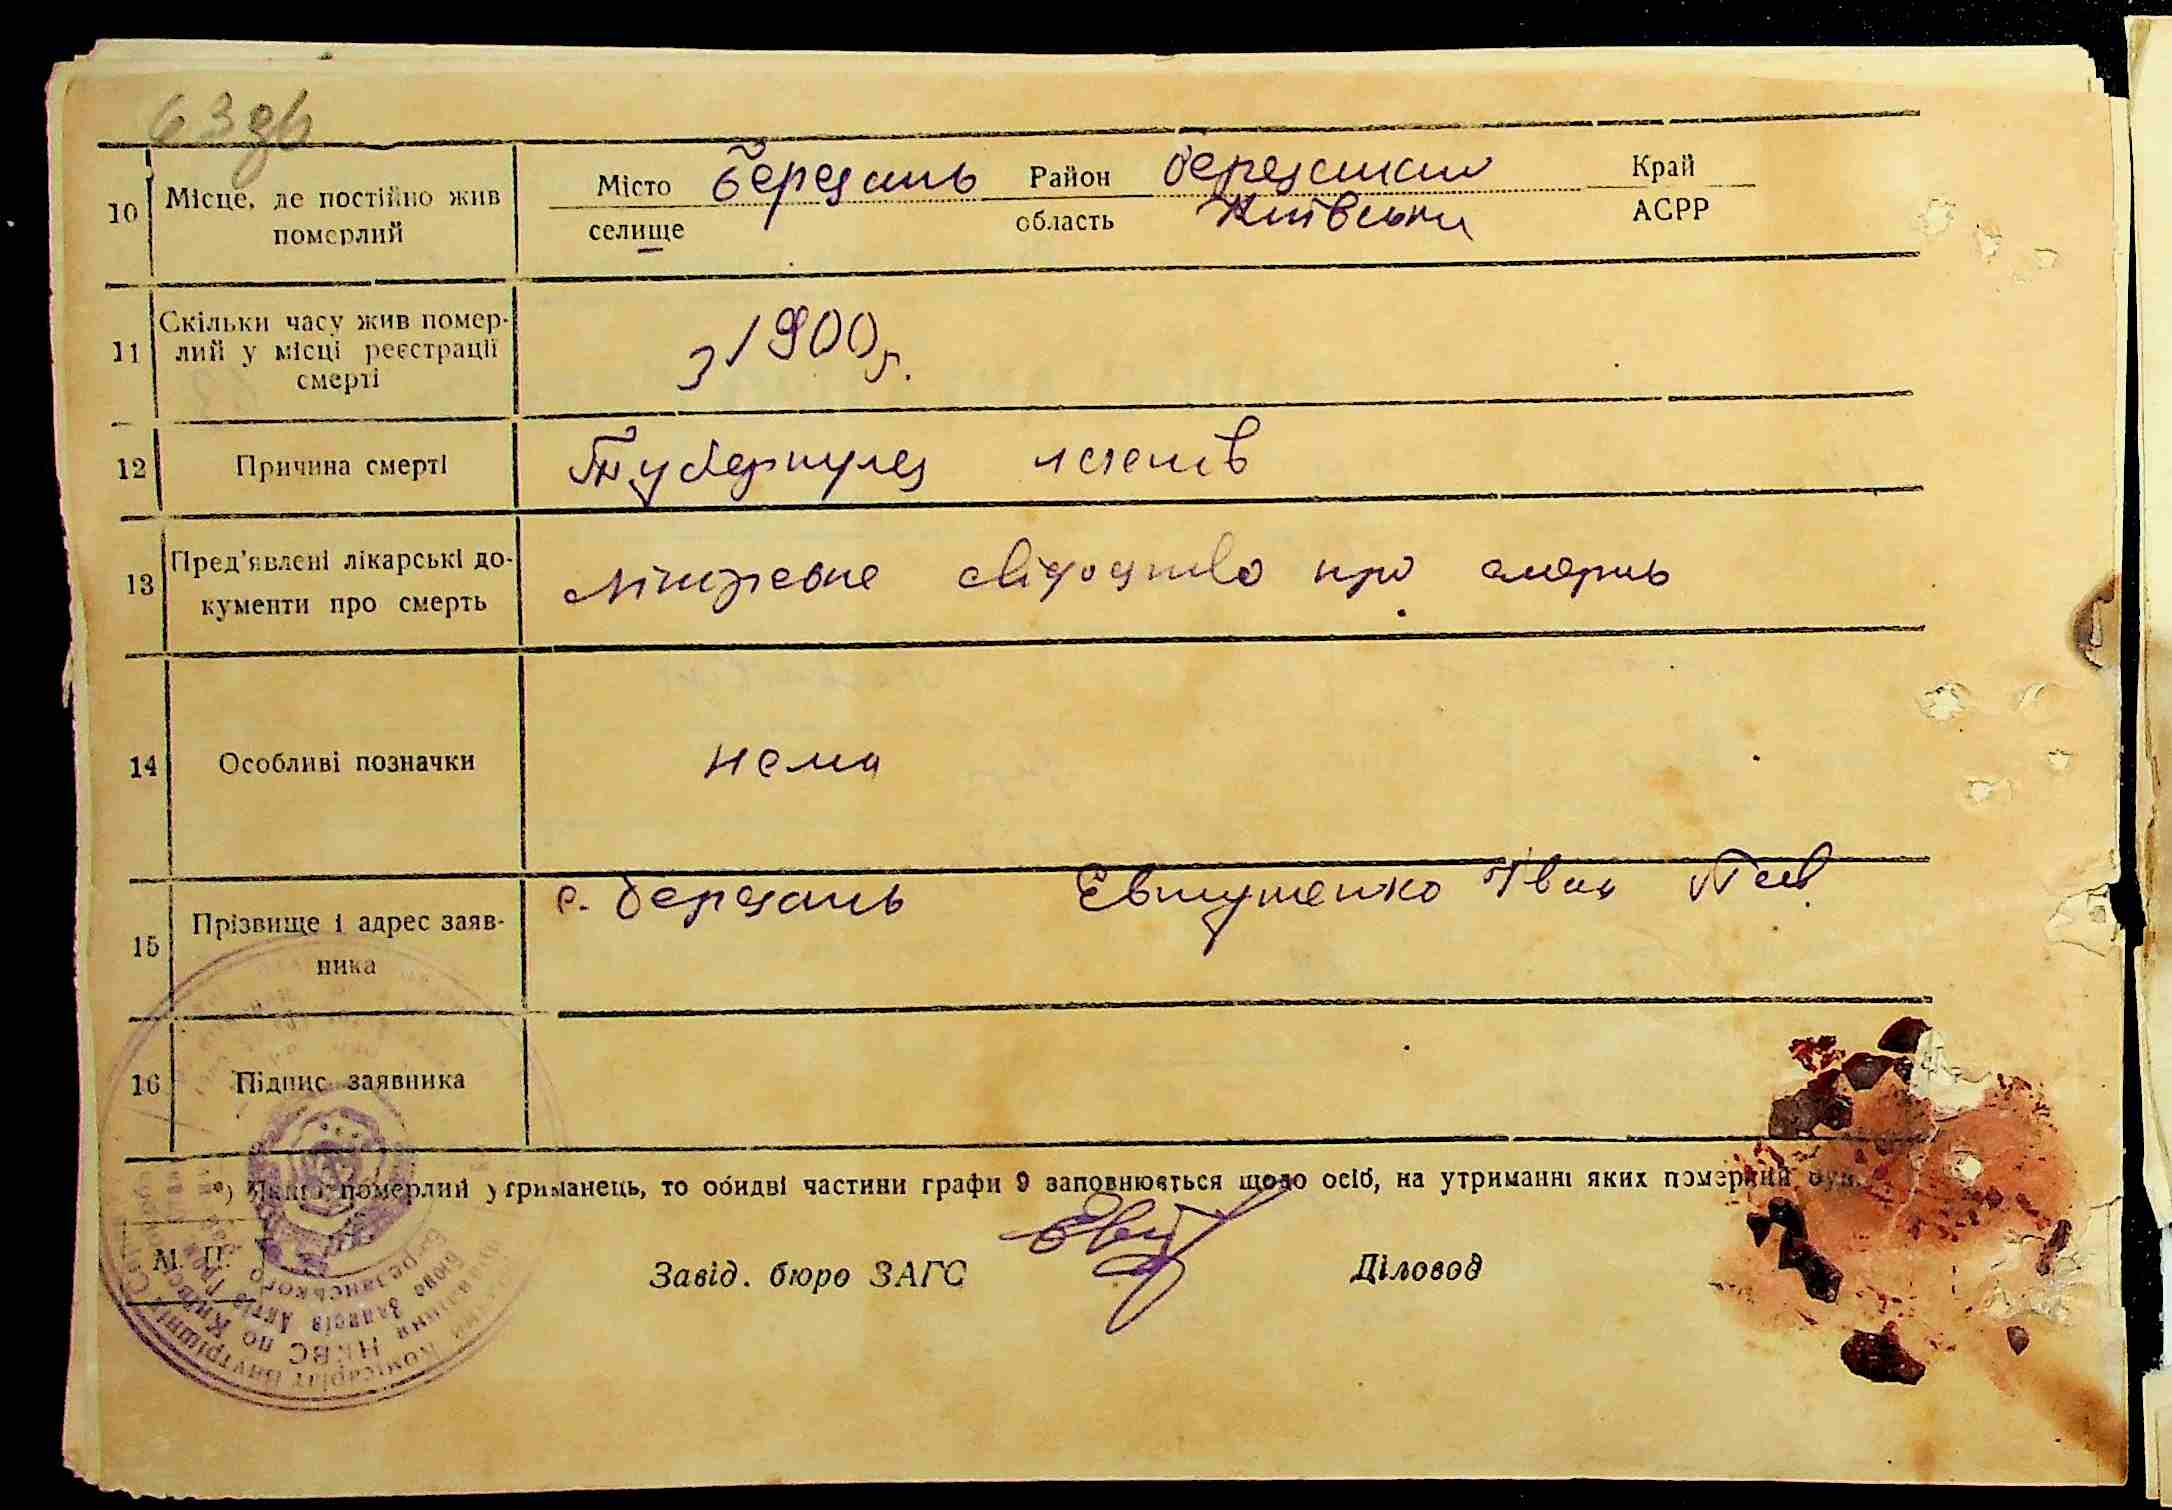 63зв
10 Місце, де постійно жив померлий
Місто Березань Район Березанський Край
селище область Київська АСРР
11 Скільки часу жив помер-
лий у місці реєстрації
смерті
з 1900 р.
12 Причина смерті Туберкулез легенів
13 Пред'явлені лікарські до-
кументи про смерть
Лікарське свідоцтво про смерть
14 Особливі позначки нема
15 Прізвище і адрес заяв-
ника
с. Березань Євтушенко Іван Пав.
16 Підпис заявника
*) Якщо померлий утриманець, то обидві частини графи 9 заповнюється щодо осіб, на утриманні яких померлий був.
М. П.
Завід. бюро ЗАГС Діловод
НКВС по Київськ
Бюро Записів Актів Гром
Березанського